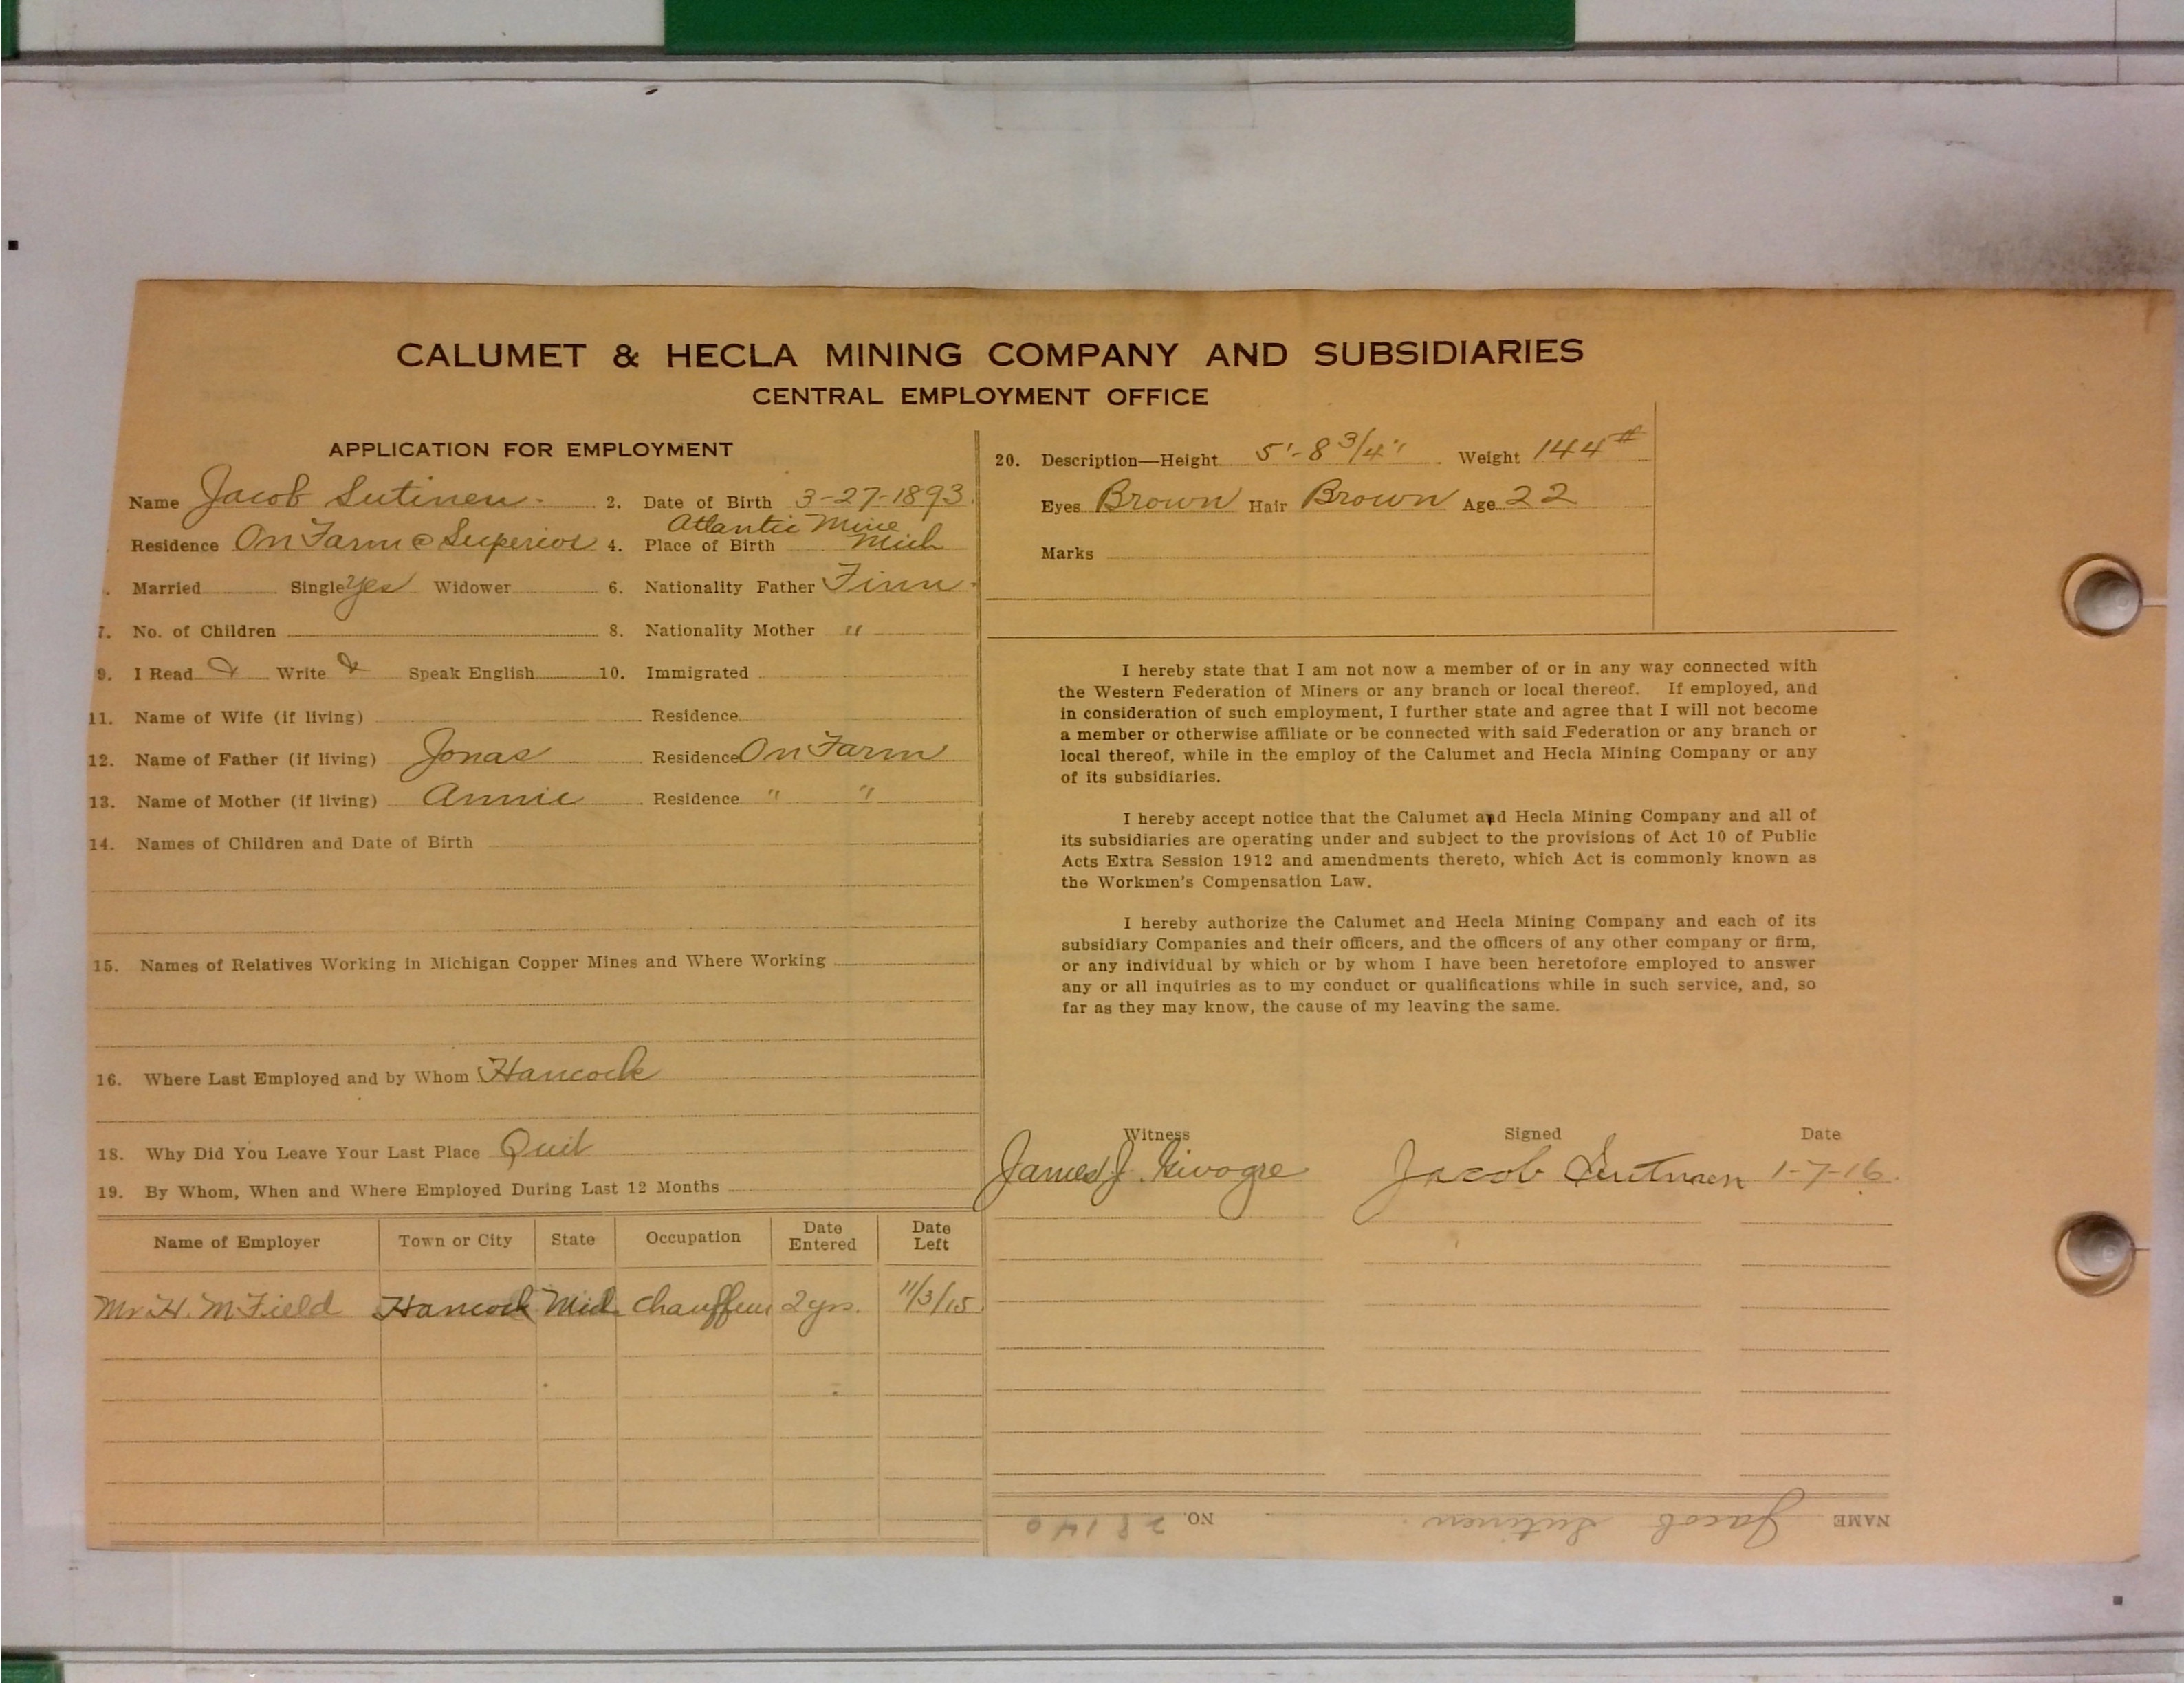 CALUMET & HECLA MINING COMPANY AND SUBSIDIARIES
CENTRAL EMPLOYMENT OFFICE
APPLICATION FOR EMPLOYMENT
Name Jacob Sutinen 2. Date of Birth 3-27-1893
Residence On Farm @ Superior 4. Place of Birth Atlantic Mine Mich
Married Single Yes Widower 6. Nationality Father Finn
7. No. of Children 8. Nationality Mother "
9. I Read & Write & Speak English 10. Immigrated
11. Name of Wife (if living) Residence
12. Name of Father (if living) Jonas Residence On Farm
13. Name of Mother (if living) Annie Residence " "
14. Names of Children and Date of Birth
15. Names of Relatives Working in Michigan Copper Mines and Where Working
16. Where Last Employed and by Whom Hancock
18. Why Did You Leave Your Last Place Quit
19. By Whom, When and Where Employed During Last 12 Months
Name of Employer Town or City State Occupation Date Entered Date Left
Mr H. M Field Hancock Mich Chauffeur 2 yrs. 11/3/15
20. Description—Height 5'-8 3/4" Weight 144#
Eyes Brown Hair Brown Age 22
Marks
I hereby state that I am not now a member of or in any way connected with
the Western Federation of Miners or any branch or local thereof. If employed, and
in consideration of such employment, I further state and agree that I will not become
a member or otherwise affiliate or be connected with said Federation or any branch or
local thereof, while in the employ of the Calumet and Hecla Mining Company or any
of its subsidiaries.
I hereby accept notice that the Calumet and Hecla Mining Company and all of
its subsidiaries are operating under and subject to the provisions of Act 10 of Public
Acts Extra Session 1912 and amendments thereto, which Act is commonly known as
the Workmen's Compensation Law.
I hereby authorize the Calumet and Hecla Mining Company and each of its
subsidiary Companies and their officers, and the officers of any other company or firm,
or any individual by which or by whom I have been heretofore employed to answer
any or all inquiries as to my conduct or qualifications while in such service, and, so
far as they may know, the cause of my leaving the same.
Witness Signed Date
James J. Jacob Sutinen 1-7-16
NAME Jacob Sutinen NO. 28140